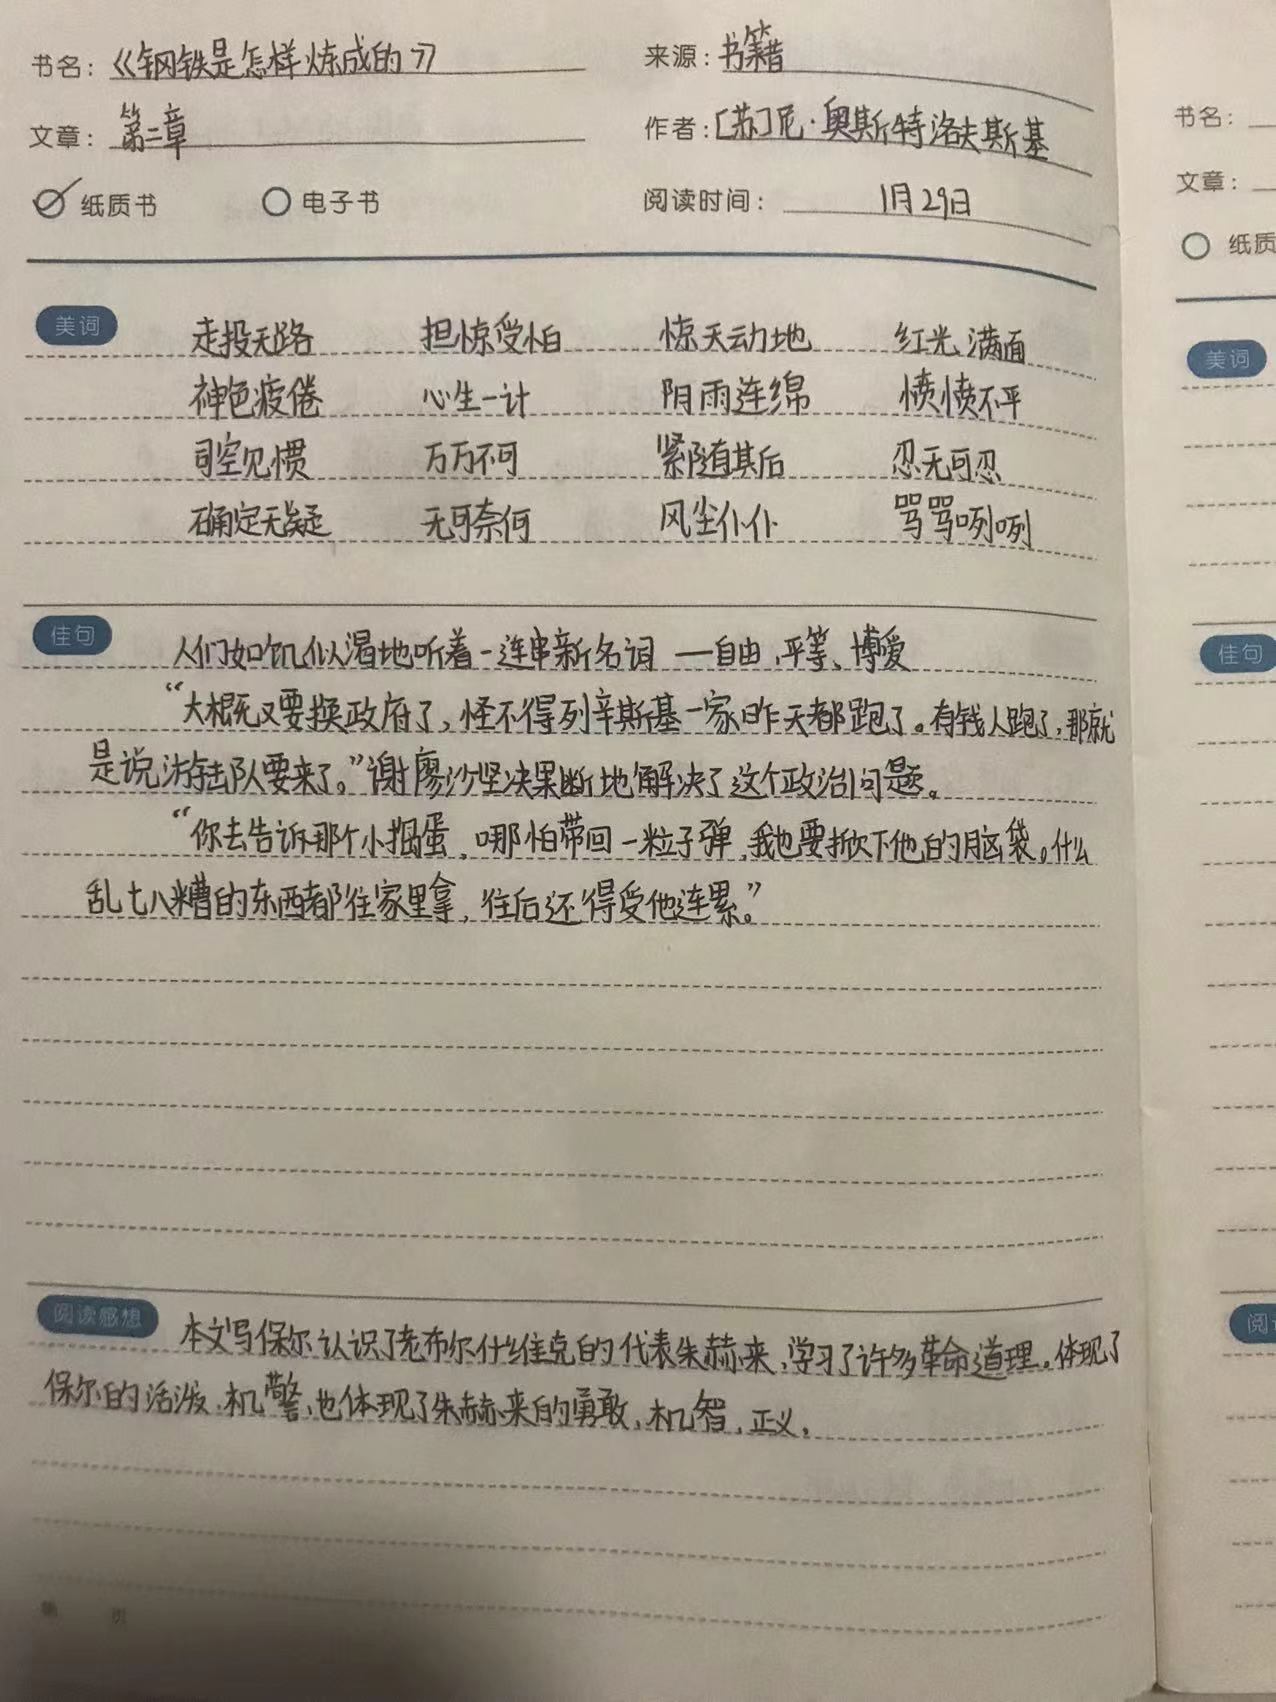 书名：《钢铁是怎样炼成的》 来源：书籍
文章：第二章 作者：[苏]尼·奥斯特洛夫斯基
纸质书 电子书 阅读时间：1月29日
美词 走投无路 担惊受怕 惊天动地 红光满面
神色疲倦 心生一计 阴雨连绵 愤愤不平
司空见惯 万万不可 紧随其后 忍无可忍
确定无疑 无可奈何 风尘仆仆 骂骂咧咧
佳句 人们如饥似渴地听着一连串新名词 —自由、平等、博爱
“大概又要换政府了，怪不得列辛斯基一家昨天都跑了。有钱人跑了，那就
是说游击队要来了。”谢廖沙坚决果断地解决了这个政治问题。
“你去告诉那个小捣蛋，哪怕带回一粒子弹，我也要掀下他的脑袋。什么
乱七八糟的东西都往家里拿，往后还得受他连累。”
阅读感想 本文写保尔认识了老布尔什维克的代表朱赫来，学习了许多革命道理。体现了
保尔的活泼、机警，也体现了朱赫来的勇敢，机智，正义，
第 页
书名：
文章：
纸质
美词
佳句
阅